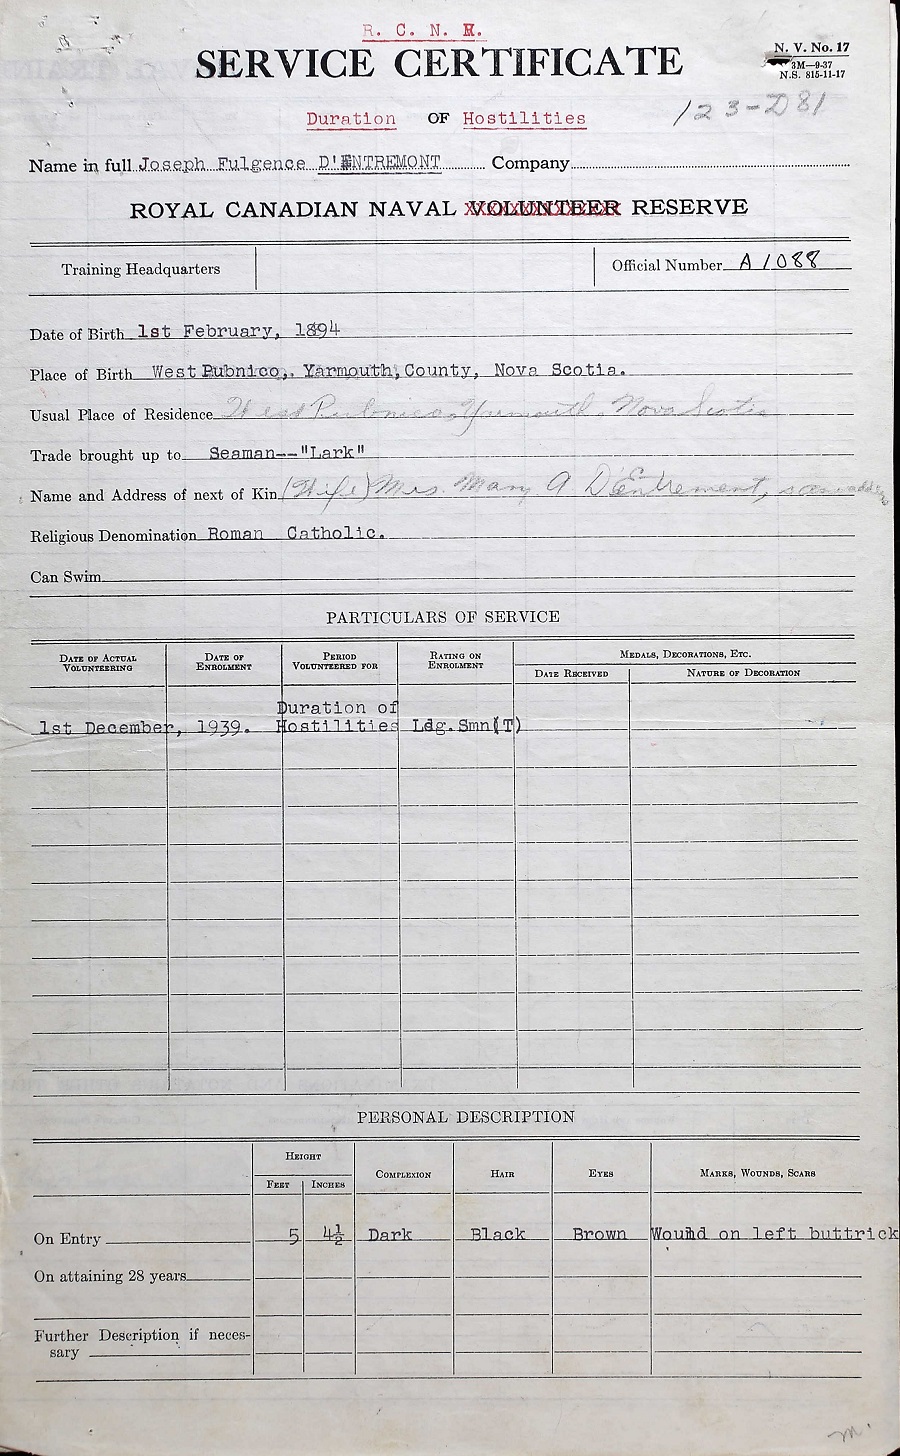 R. C. N. R.
SERVICE CERTIFICATE
N. V. No. 17
3M—9-37
N.S. 815-11-17
Duration OF Hostilities
123-D81
Name in full Joseph Fulgence D'ENTREMONT Company
ROYAL CANADIAN NAVAL VOLUNTEER RESERVE
Training Headquarters
Official Number A1088
Date of Birth 1st February, 1894
Place of Birth West Pubnico, Yarmouth, County, Nova Scotia.
Usual Place of Residence West Pubnico, Yarmouth, Nova Scotia
Trade brought up to Seaman--"Lark"
Name and Address of next of Kin (Wife) Mrs. Mary A D'Entremont,
Religious Denomination Roman Catholic.
Can Swim
PARTICULARS OF SERVICE
DATE OF ACTUAL VOLUNTEERING DATE OF ENROLMENT PERIOD VOLUNTEERED FOR RATING ON ENROLMENT MEDALS, DECORATIONS, ETC.
DATE RECEIVED NATURE OF DECORATION
Duration of
1st December, 1939. Hostilities Ldg.Smn(T)
PERSONAL DESCRIPTION
HEIGHT
FEET INCHES COMPLEXION HAIR EYES MARKS, WOUNDS, SCARS
On Entry 5 4½ Dark Black Brown Wound on left buttrick
On attaining 28 years
Further Description if neces-
sary
m.